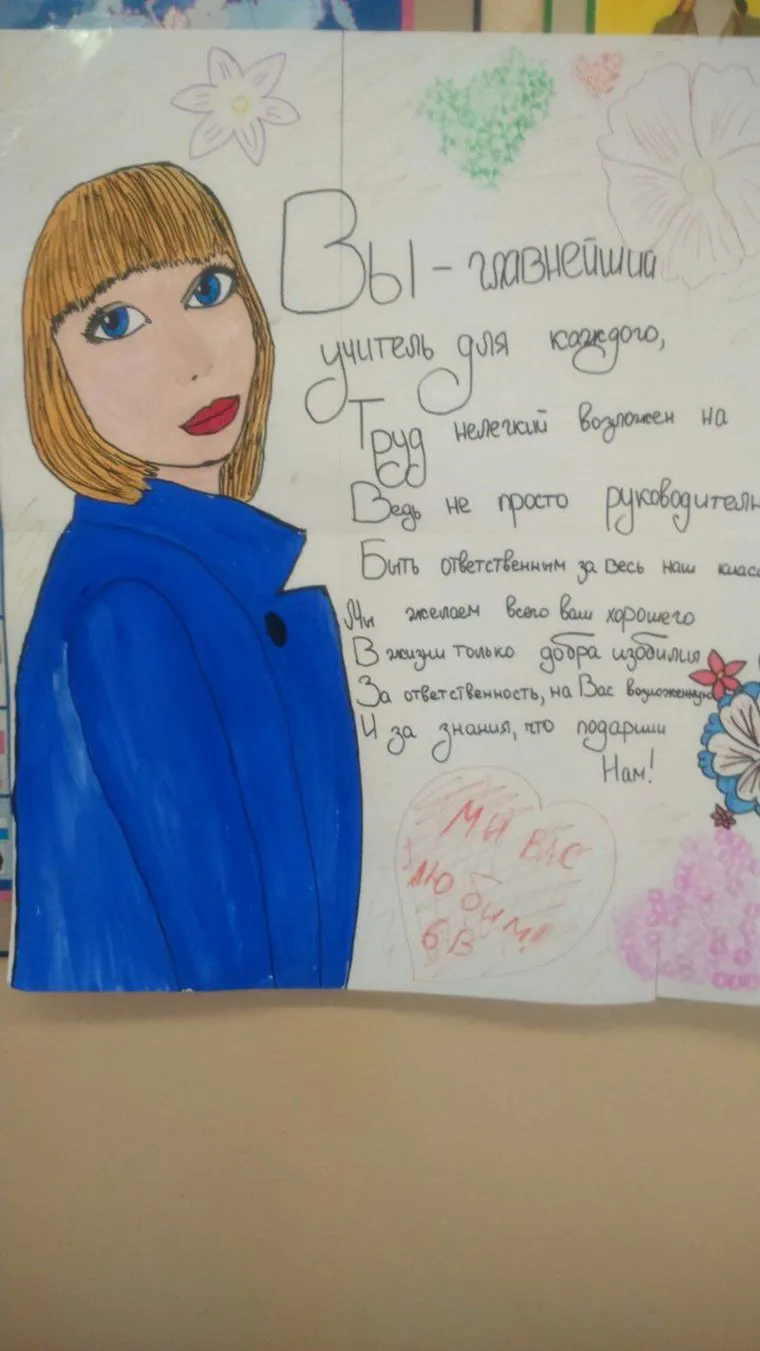 Вы - главнейший
учитель для каждого,
Труд нелегкий возложен на
Ведь не просто руководитель
Быть ответственным за весь наш класс
Мы желаем всего вам хорошего
В жизни только добра изобилия
За ответственность, на Вас возложенную
И за знания, что подариши
Нам!
МЫ ВАС
ЛЮБИМ!
6 В